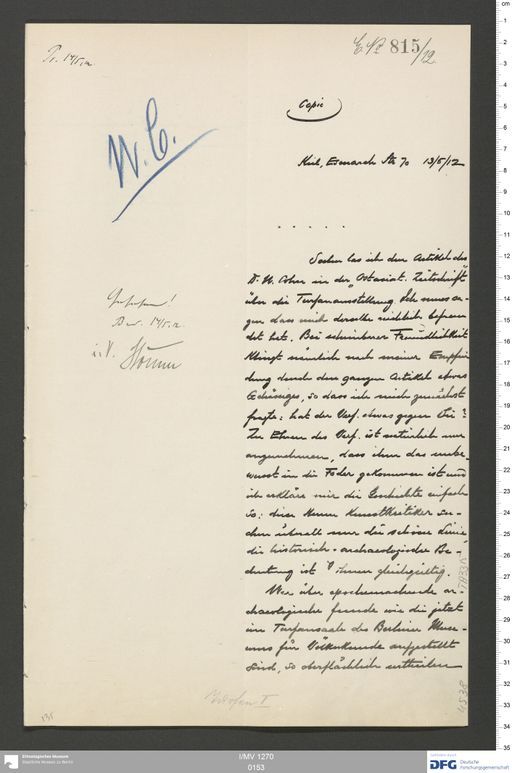 E. No 815/12
Copie
Kiel, Esmarch Str 70 13/5/12
. . . . .
Soeben las ich den Artikel des
D. W. Cohn in der "Ostasiat. Zeitschrift"
über die Turfanausstellung. Ich muss sa-
gen dass mich derselbe
det hat. Bei scheinbarer Freundlichkeit
klingt nämlich nach meiner Empfin
dung durch den ganzen Artikel etwas
Gehässiges, so dass ich mich zunächst
fragte: hat der Verf. etwas gegen Sie?
Zu Ehren des Verf. ist natürlich nur
anzunehmen, dass ihm das unbe-
wusst in die Feder gekommen ist und
ich erkläre mir die Geschichte einfach
so: diese Herren Kunstkritiker su-
chen überall nur die schöne Linie,
die historisch-archaeologische Be-
deutung ist ihnen gleichgültig.
Wer über epochemachende ar-
chaeologische Funde wie die jetzt
im Turfansaale des Berliner Muse-
ums für Völkerkunde aufgestellt
sind, so oberflächlich urtheilen
Ethnologisches Museum
Staatliche Museen zu Berlin
I/MV 1270
0153
DFG Deutsche
Forschungsgemeinschaft